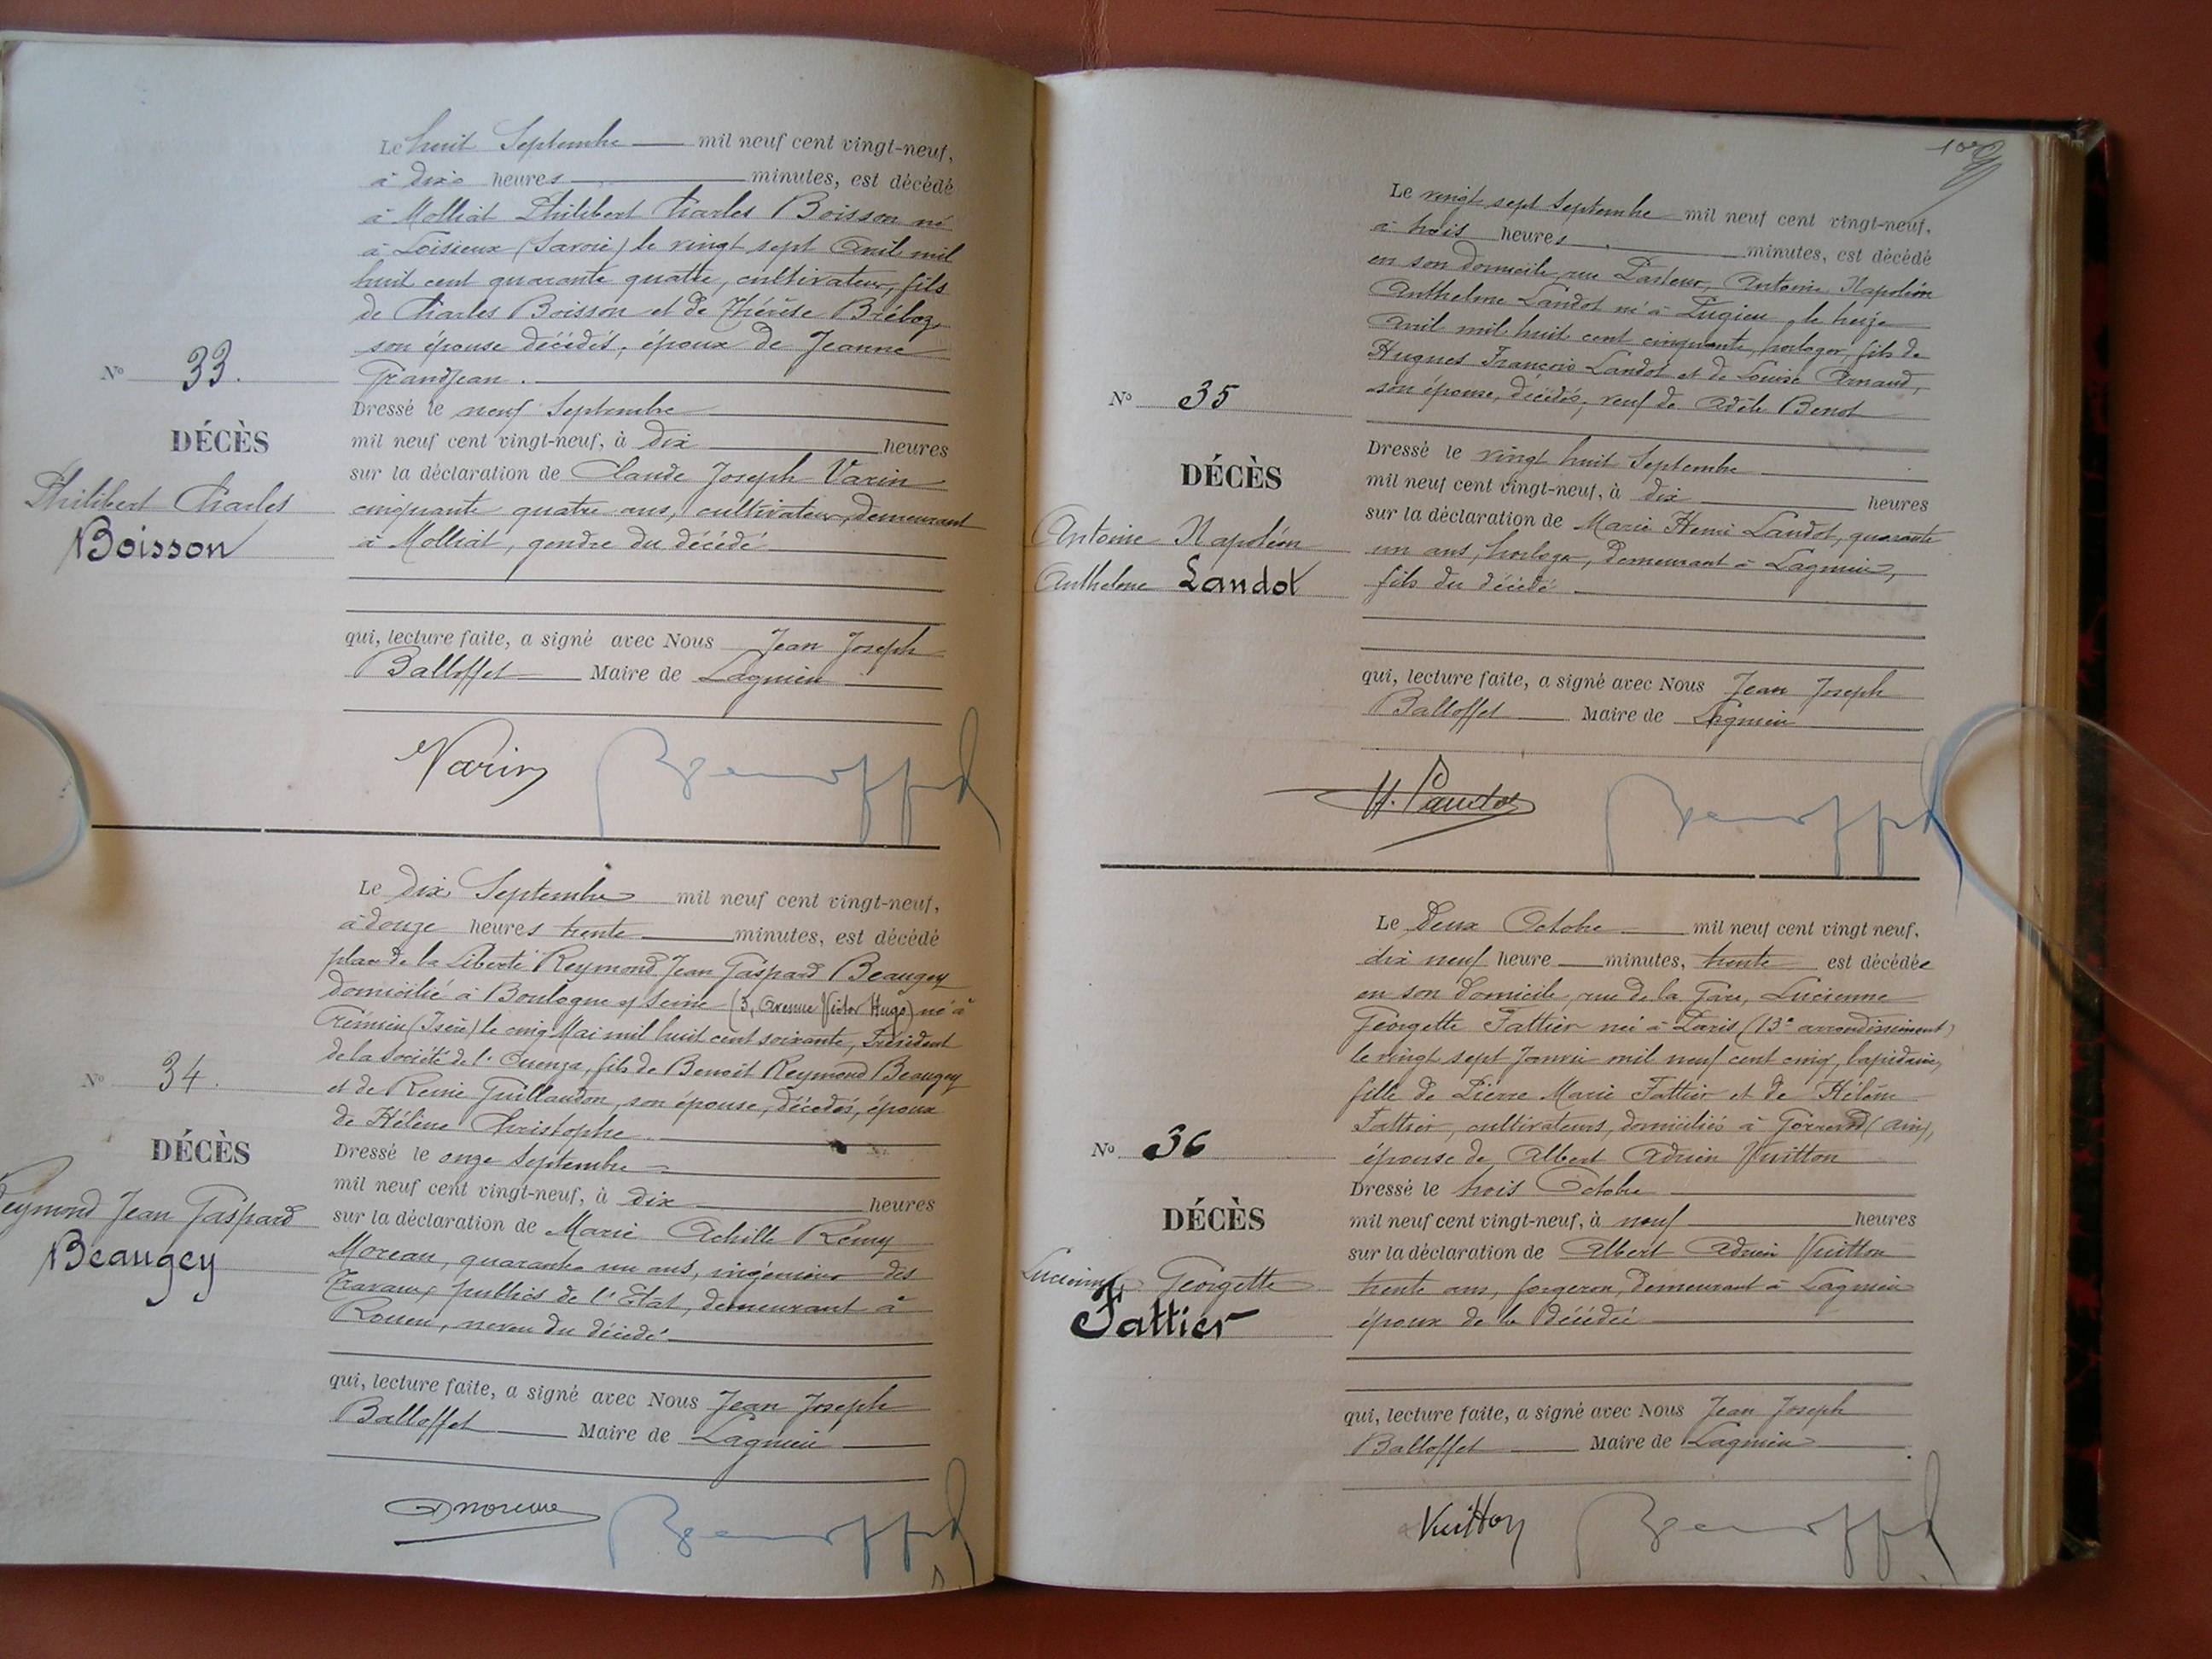 Le huit Septembre mil neuf cent vingt-neuf,
à dix heures minutes, est décédé
à Molliat Philibert Charles Boisson né
à Loisieux (Savoie) le vingt sept Avril mil
huit cent quarante quatre, cultivateur, fils
de Charles Boisson et de Thérèse Bréboz,
son épouse décédés, époux de Jeanne
Grandjean.
No 33.
DÉCÈS
Philibert Charles
Boisson
Dressé le neuf Septembre
mil neuf cent vingt-neuf, à dix heures
sur la déclaration de Claude Joseph Varin
cinquante quatre ans, cultivateur, demeurant
à Molliat, gendre du décédé
qui, lecture faite, a signé avec Nous Jean Joseph
Balloffet Maire de Lagnieu
Varin
Le dix Septembre mil neuf cent vingt-neuf,
à douze heures trente minutes, est décédé
place de la Liberté Reymond Jean Gaspard Beaugey
domicilié à Boulogne s/ Seine (3, Avenue Victor Hugo) né à
Crémieu (Isère) le cinq Mai mil huit cent soixante, Président
de la Société de l'Ouenza, fils de Benoit Reymond Beaugey
et de Reine Guillaudon, son épouse, décédés, époux
de Hélène Christophe
No 34.
DÉCÈS
Reymond Jean Gaspard
Beaugey
Dressé le onze Septembre
mil neuf cent vingt-neuf, à dix heures
sur la déclaration de Marie Achille Rémy
Moreau, quarante un ans, ingénieur des
travaux publics de l'Etat, demeurant à
Rouen, neveu du décédé
qui, lecture faite, a signé avec Nous Jean Joseph
Balloffet Maire de Lagnieu
Le vingt sept Septembre mil neuf cent vingt-neuf,
à trois heures minutes, est décédé
en son domicile, rue Pasteur, Antoine Napoléon
Anthelme Landot né à Lugieu, le treize
Avril mil huit cent cinquante, horloger, fils de
Hugues François Landot et de Louise Arnaud,
son épouse, décédés, veuf de Adèle Benot
No 35
DÉCÈS
Antoine Napoléon
Anthelme Landot
Dressé le vingt huit Septembre
mil neuf cent vingt-neuf, à dix heures
sur la déclaration de Marie Henri Landot, quarante
un ans, horloger, demeurant à Lagnieu,
fils du décédé
qui, lecture faite, a signé avec Nous Jean Joseph
Balloffet Maire de Lagnieu
H. Landot
Le Deux Octobre mil neuf cent vingt neuf,
dix neuf heure minutes, trente est décédée
en son domicile, rue de la Gare, Lucienne
Georgette Fattier née à Paris (13e arrondissement)
le vingt sept Janvier mil neuf cent cinq, lapidaire,
fille de Pierre Marie Fattier et de Hélène
Fattier, cultivateurs, domiciliés à (Ain),
épouse de Albert Adrien Vuitton
No 36
DÉCÈS
Lucienne Georgette
Fattier
Dressé le trois Octobre
mil neuf cent vingt-neuf, à neuf heures
sur la déclaration de Albert Adrien Vuitton
trente ans, forgeron, demeurant à Lagnieu
époux de la décédée
qui, lecture faite, a signé avec Nous Jean Joseph
Balloffet Maire de Lagnieu
Vuitton